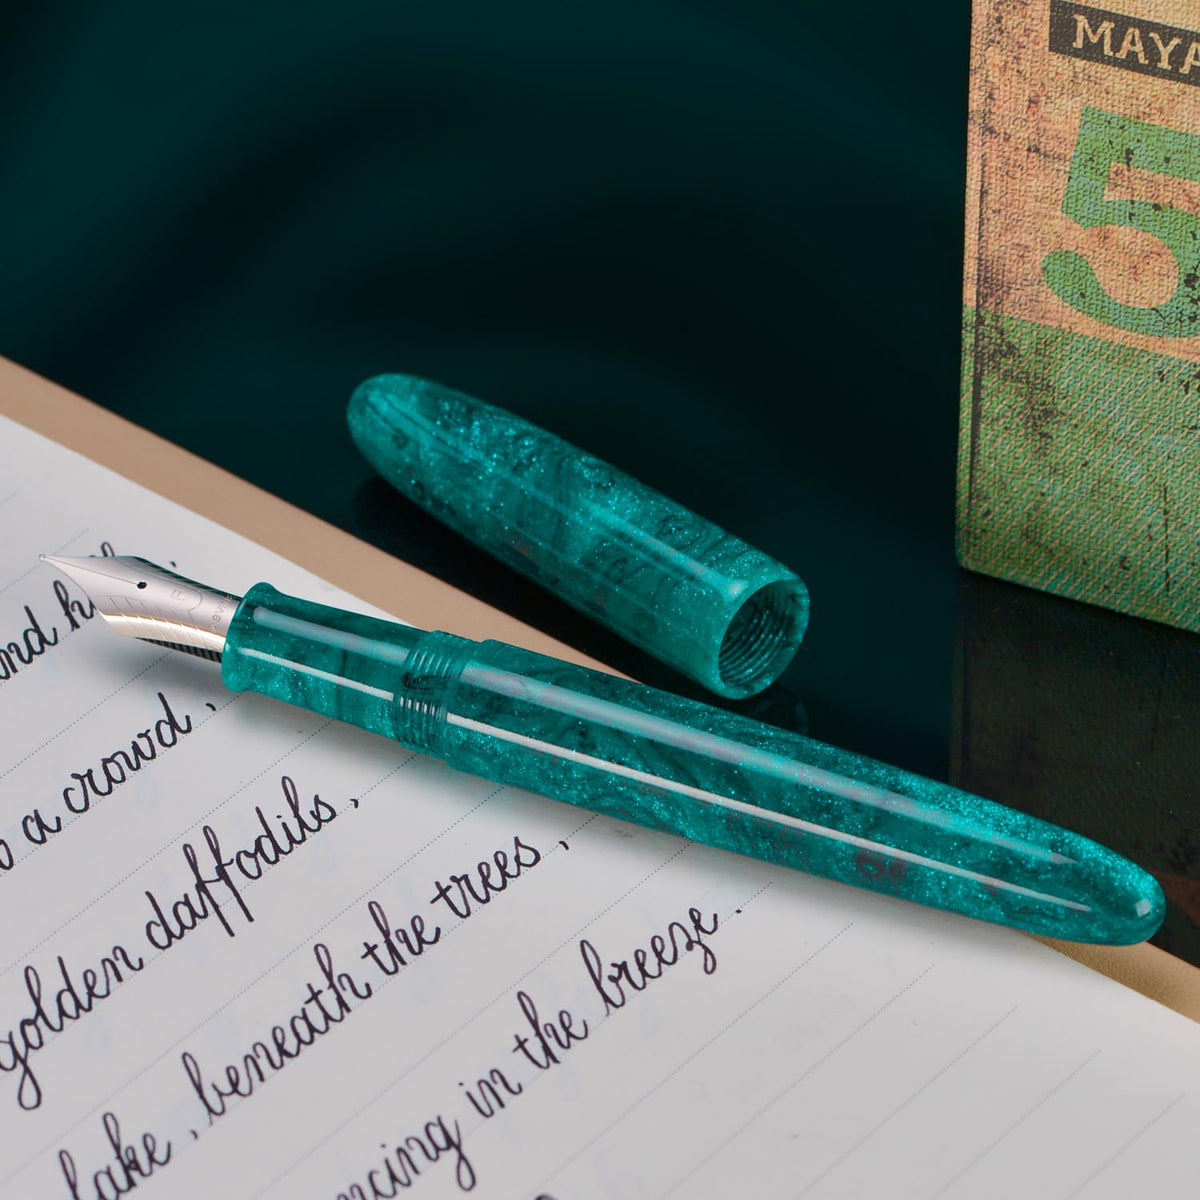 MAYA
5
and h
a crowd,
golden daffodils,
lake, beneath the trees,
ncing in the breeze.
F